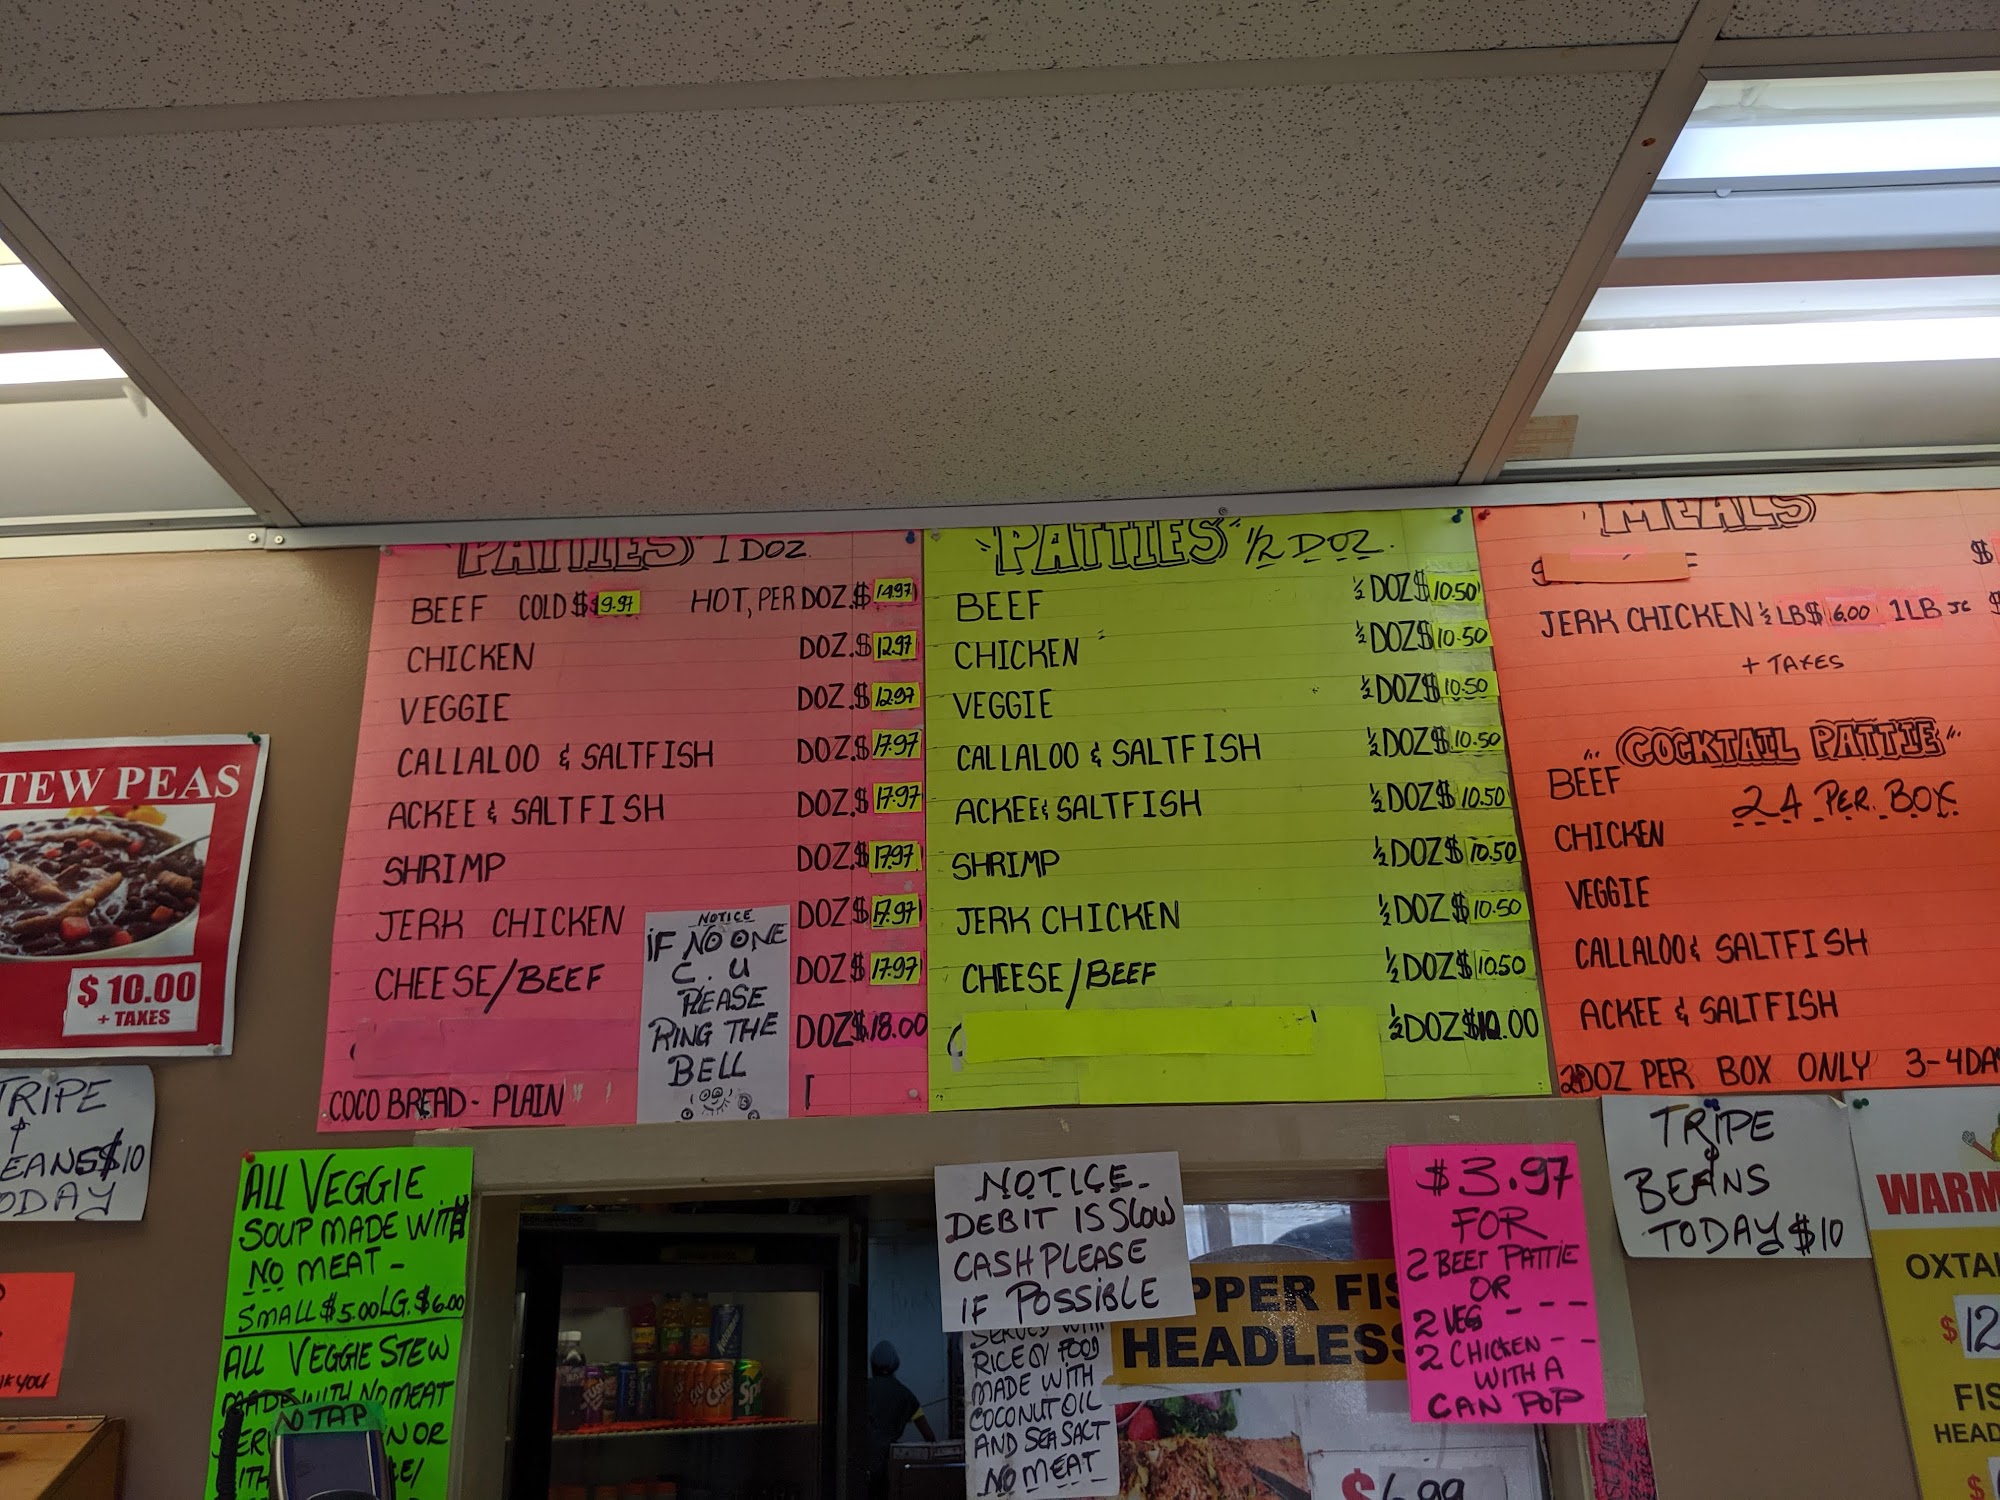 PATTIES 1 DOZ.
BEEF COLD $ 9.97 HOT, PER DOZ. $ 14.97
CHICKEN DOZ. $ 12.97
VEGGIE DOZ. $ 12.97
CALLALOO & SALTFISH DOZ. $ 17.97
ACKEE & SALTFISH DOZ. $ 17.97
SHRIMP DOZ. $ 17.97
JERK CHICKEN DOZ $ 17.97
CHEESE/BEEF DOZ $ 17.97
DOZ $18.00
COCO BREAD - PLAIN
NOTICE
IF NO ONE
C. U
PLEASE
RING THE
BELL
"PATTIES" 1/2 DOZ.
BEEF 1/2 DOZ $ 10.50
CHICKEN 1/2 DOZ $ 10.50
VEGGIE 1/2 DOZ $ 10.50
CALLALOO & SALTFISH 1/2 DOZ $ 10.50
ACKEE & SALTFISH 1/2 DOZ $ 10.50
SHRIMP 1/2 DOZ $ 10.50
JERK CHICKEN 1/2 DOZ $ 10.50
CHEESE/BEEF 1/2 DOZ $ 10.50
1/2 DOZ $10.00
MEALS
$
JERK CHICKEN 1/2 LB $ 6.00 1LB JC $
+ TAXES
"COCKTAIL PATTIE"
24 PER. BOX
BEEF
CHICKEN
VEGGIE
CALLALOO & SALTFISH
ACKEE & SALTFISH
2DOZ PER BOX ONLY 3-4DA
TEW PEAS
$ 10.00
+ TAXES
TRIPE
&
EANS $10
ODAY
ALL VEGGIE
SOUP MADE WITH
NO MEAT -
SMALL $5.00 LG. $6.00
ALL VEGGIE STEW
MADE WITH NO MEAT
NO TAP
NOTICE
DEBIT IS SLOW
CASH PLEASE
IF POSSIBLE
SERVED WITH
RICE OR FOOD
MADE WITH
COCONUT OIL
AND SEA SALT
NO MEAT
PPER FIS
HEADLESS
$6.99
$3.97
FOR
2 BEEF PATTIE
OR
2 VEG - - -
2 CHICKEN - -
WITH A
CAN POP
TRIPE
&
BEANS
TODAY $10
WARM
OXTA
$12
FIS
HEAD
$
Crush